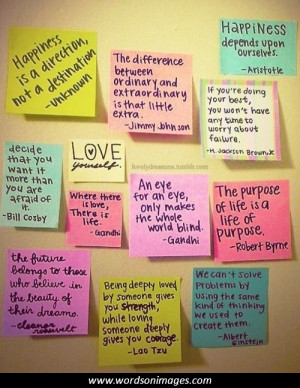 Happiness
is a direction
not a destination
-unknown
The difference
between
ordinary and
extraordinary
is that little
extra.
-Jimmy Johnson
Happiness
depends upon
ourselves.
-Aristotle
If you're doing
your best,
you won't have
any time to
worry about
failure.
-H. Jackson Brown, Jr.
decide
that you
want it
more than
you are
afraid of
it.
-Bill Cosby
LOVE
yourself.
lovelydreamsss.tumblr.com
Where there
is love,
There is
life.
-Gandhi
An eye
for an eye,
only makes
the whole
world blind.
-Gandhi
The purpose
of life is a
life of
purpose.
-Robert Byrne
the future
belongs to those
who believe in
the beauty of
their dreams.
-eleanor
roosevelt
Being deeply loved
by someone gives
you strength,
while loving
someone deeply
gives you courage.
-Lao Tzu
We can't solve
problems by
using the same
kind of thinking
we used to
create them.
-Albert
Einstein
www.wordsonimages.com